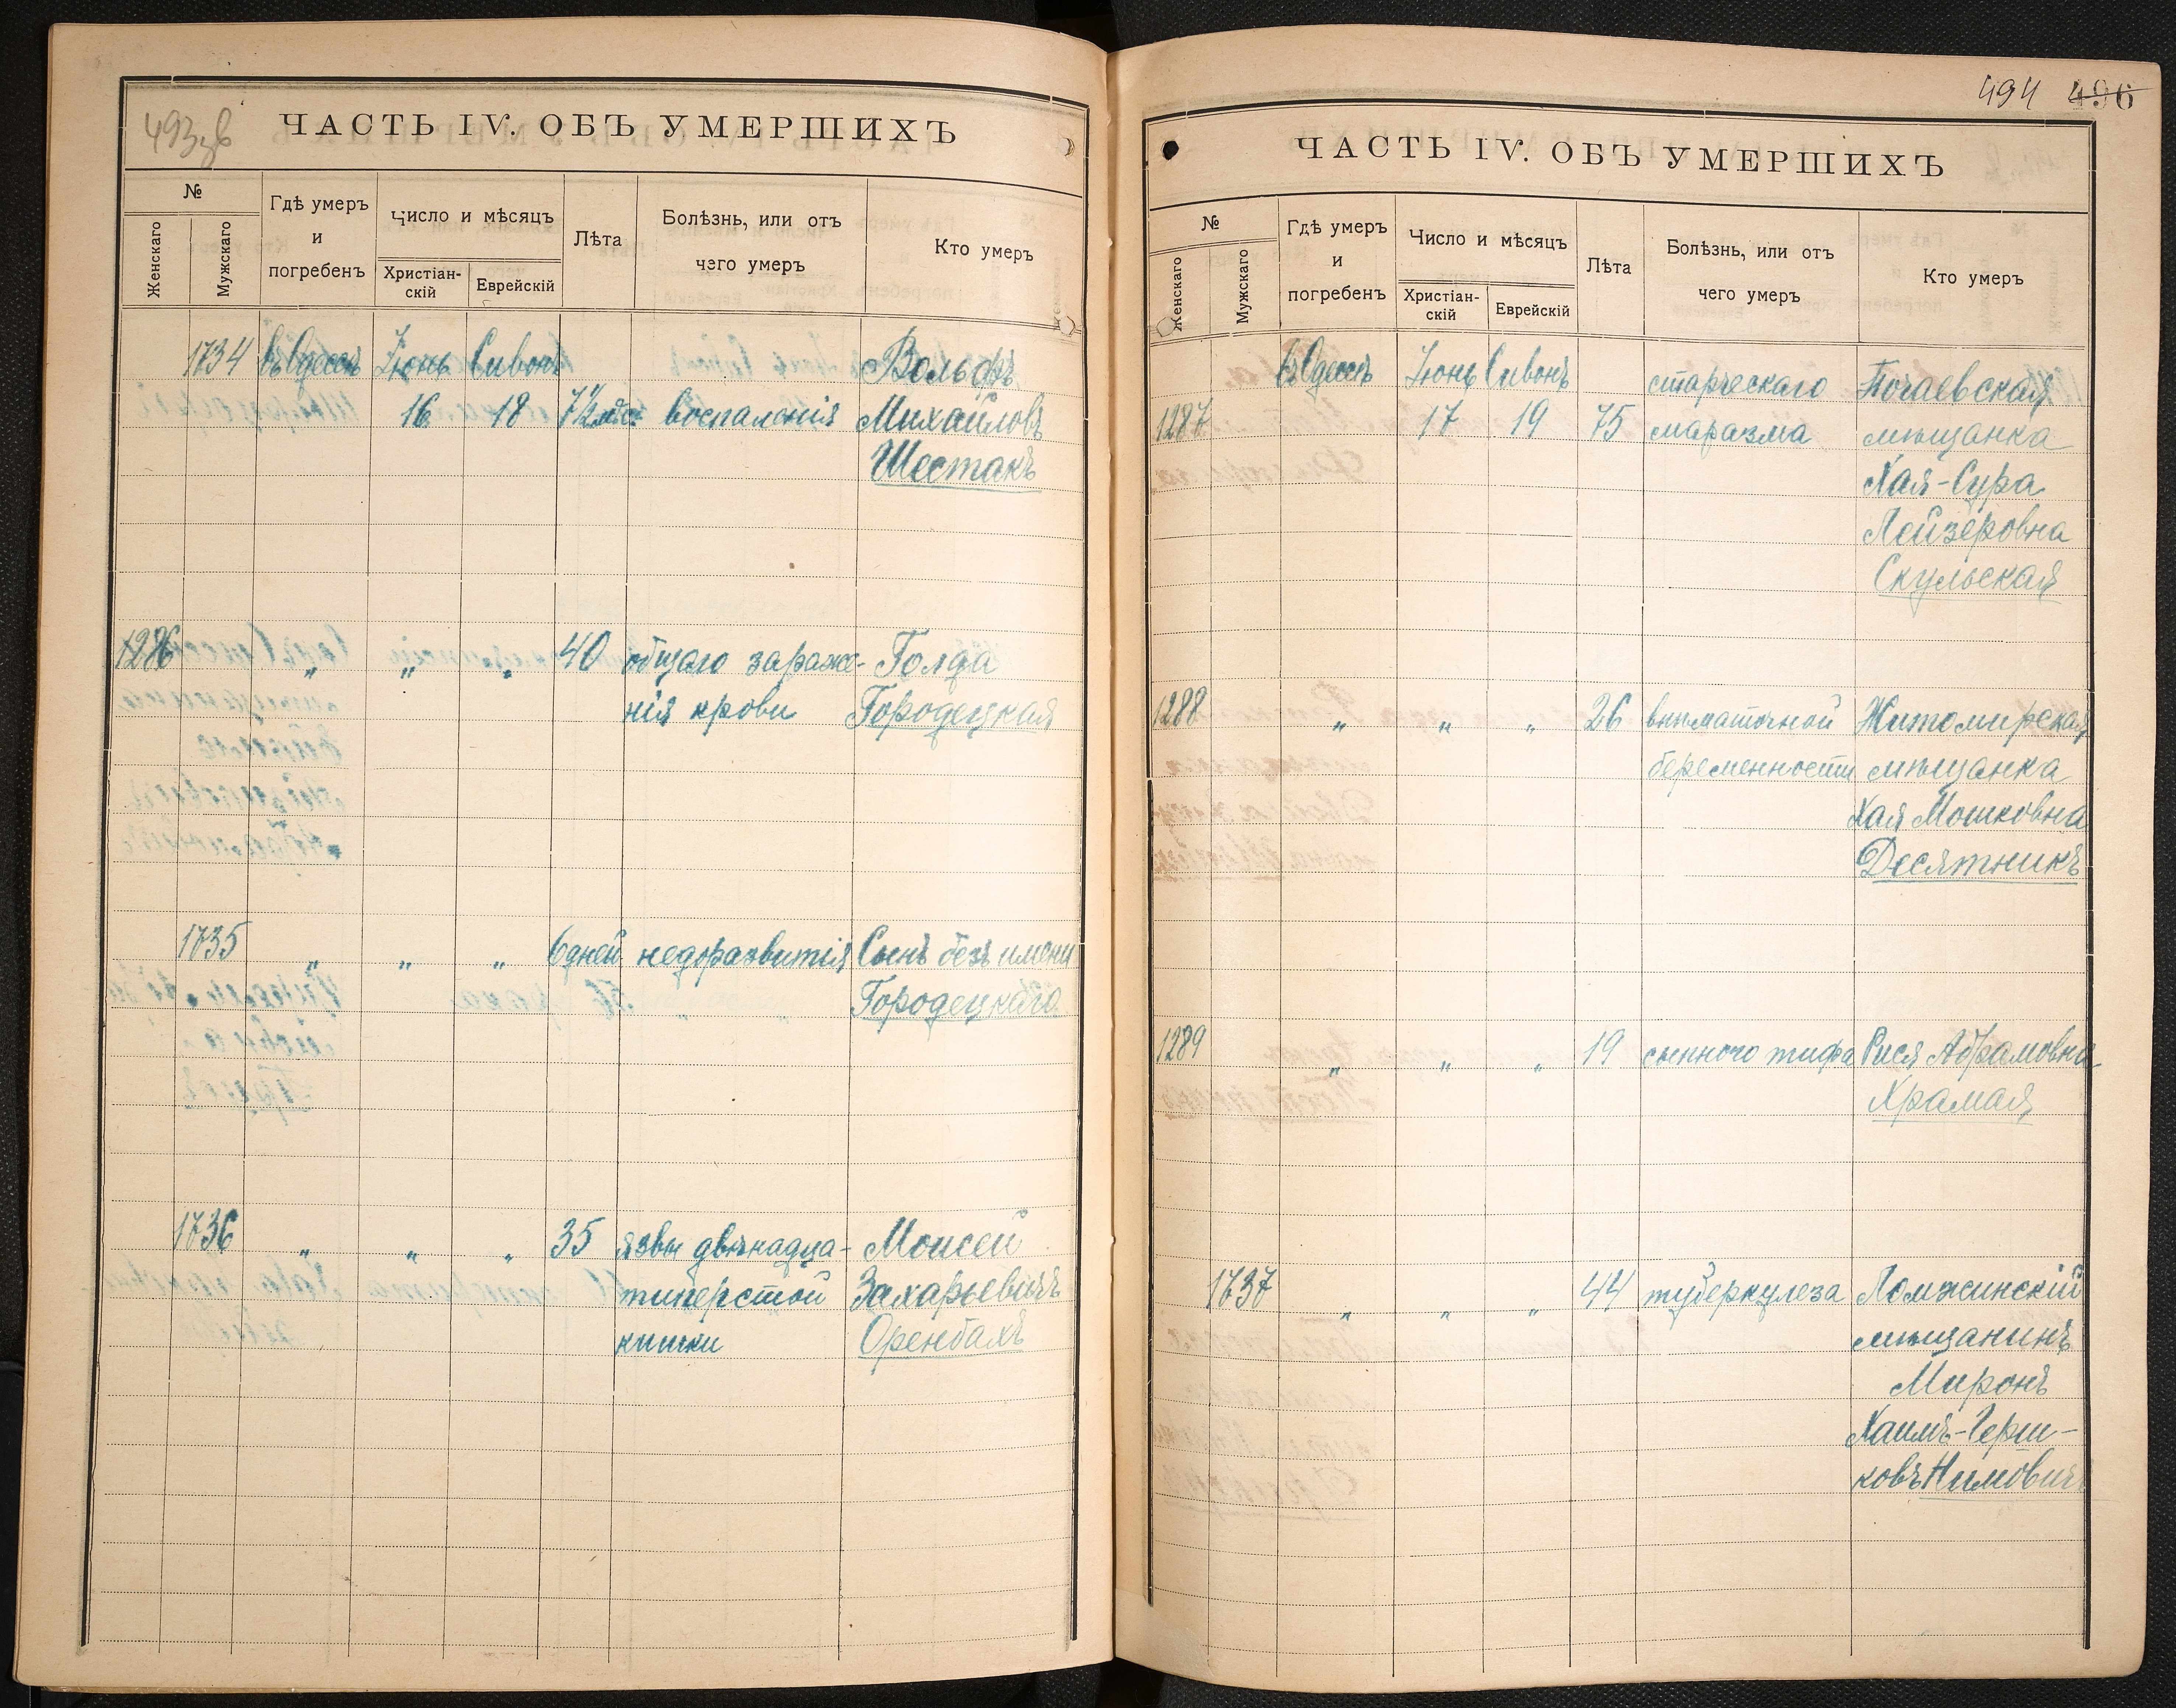 493зв
ЧАСТЬ IV. ОБЪ УМЕРШИХЪ
№
Женскаго
Мужскаго
Гдѣ умеръ
и
погребенъ
Число и мѣсяцъ
Христіан-
скій
Еврейскій
Лѣта
Болѣзнь, или отъ
чего умеръ
Кто умеръ
1734 въ Одессѣ Іюнь Сивонъ Вольфъ
16 18 воспаленія Михайловъ
Шестакъ
1286 „ „ „ 40 общаго зараже- Голда
нія крови Городецкая
1735 „ „ „ 6 дней недоразвитія Сынъ безъ имени
Городецкаго
1736 „ „ „ 35 язвы двѣнадца- Моисей
типерстой Захарьевичъ
кишки Оренбахъ
494 496
ЧАСТЬ IV. ОБЪ УМЕРШИХЪ
№
Женскаго
Мужскаго
Гдѣ умеръ
и
погребенъ
Число и мѣсяцъ
Христіан-
скій
Еврейскій
Лѣта
Болѣзнь, или отъ
чего умеръ
Кто умеръ
въ Одессѣ Іюнь Сивонъ старческаго Почаевская
1287 17 19 75 маразма мѣщанка
Хая-Сура
Лейзеровна
Скульская
1288 „ „ „ 26 внѣматочной Житомирская
беременности мѣщанка
Хая Мошковна
Десятникъ
1289 „ „ „ 19 сыпного тифа Рися Абрамовна
Храмая
1737 „ „ „ 44 туберкулеза Ломжинскій
мѣщанинъ
Миронъ
Хаимъ-Герш-
ковъ Нимовичъ